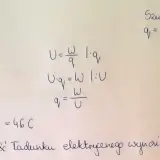 Szu
q =
U = W/q |·q
U·q = W |:U
q = W/U
= 46 C
Ładunku elektrycznego wynos